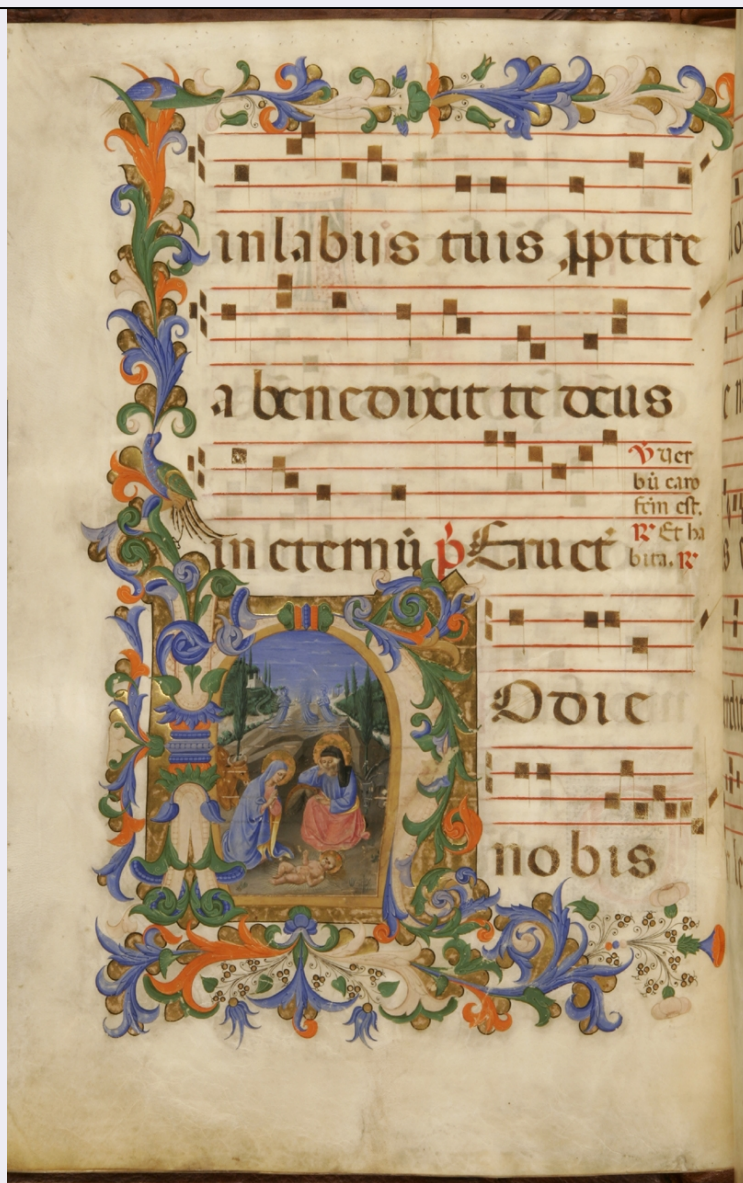 in labijs tuis ꝓptere
a benedixit te deus
in eternū p̄ Eruct
℣ Uer
bū caro
fcm̄ est.
℟ Et ha
bita. ℟
Hodie
nobis